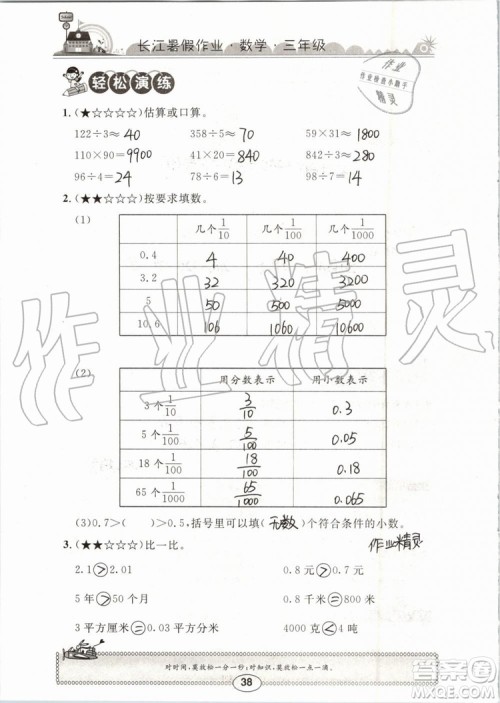 长江暑假作业·数学·三年级
作业
作业检查小助手
精灵
轻松演练
1.(★☆☆☆☆)估算或口算。
122÷3≈40 358÷5≈70 59×31≈1800
110×90=9900 41×20=840 842÷3≈280
96÷4=24 78÷6=13 98÷7=14
2.(★★☆☆☆)按要求填数。
(1)
几个1/10 几个1/100 几个1/1000
0.4 4 40 400
3.2 32 320 3200
5 50 500 5000
10.6 106 1060 10600
(2)
用分数表示 用小数表示
3个1/10 3/10 0.3
5个1/100 5/100 0.05
18个1/100 18/100 0.18
65个1/1000 65/1000 0.065
(3)0.7>( )>0.5,括号里可以填(无数)个符合条件的小数。
3.(★★☆☆☆)比一比。
作业精灵
2.1>2.01 0.8元>0.7元
5年>50个月 0.8千米=800米
3平方厘米=0.03平方分米 4000克=4吨
对时间,莫放松一分一秒;对知识,莫放松一点一滴。
38
作业精灵
答案圈
MXQE.COM